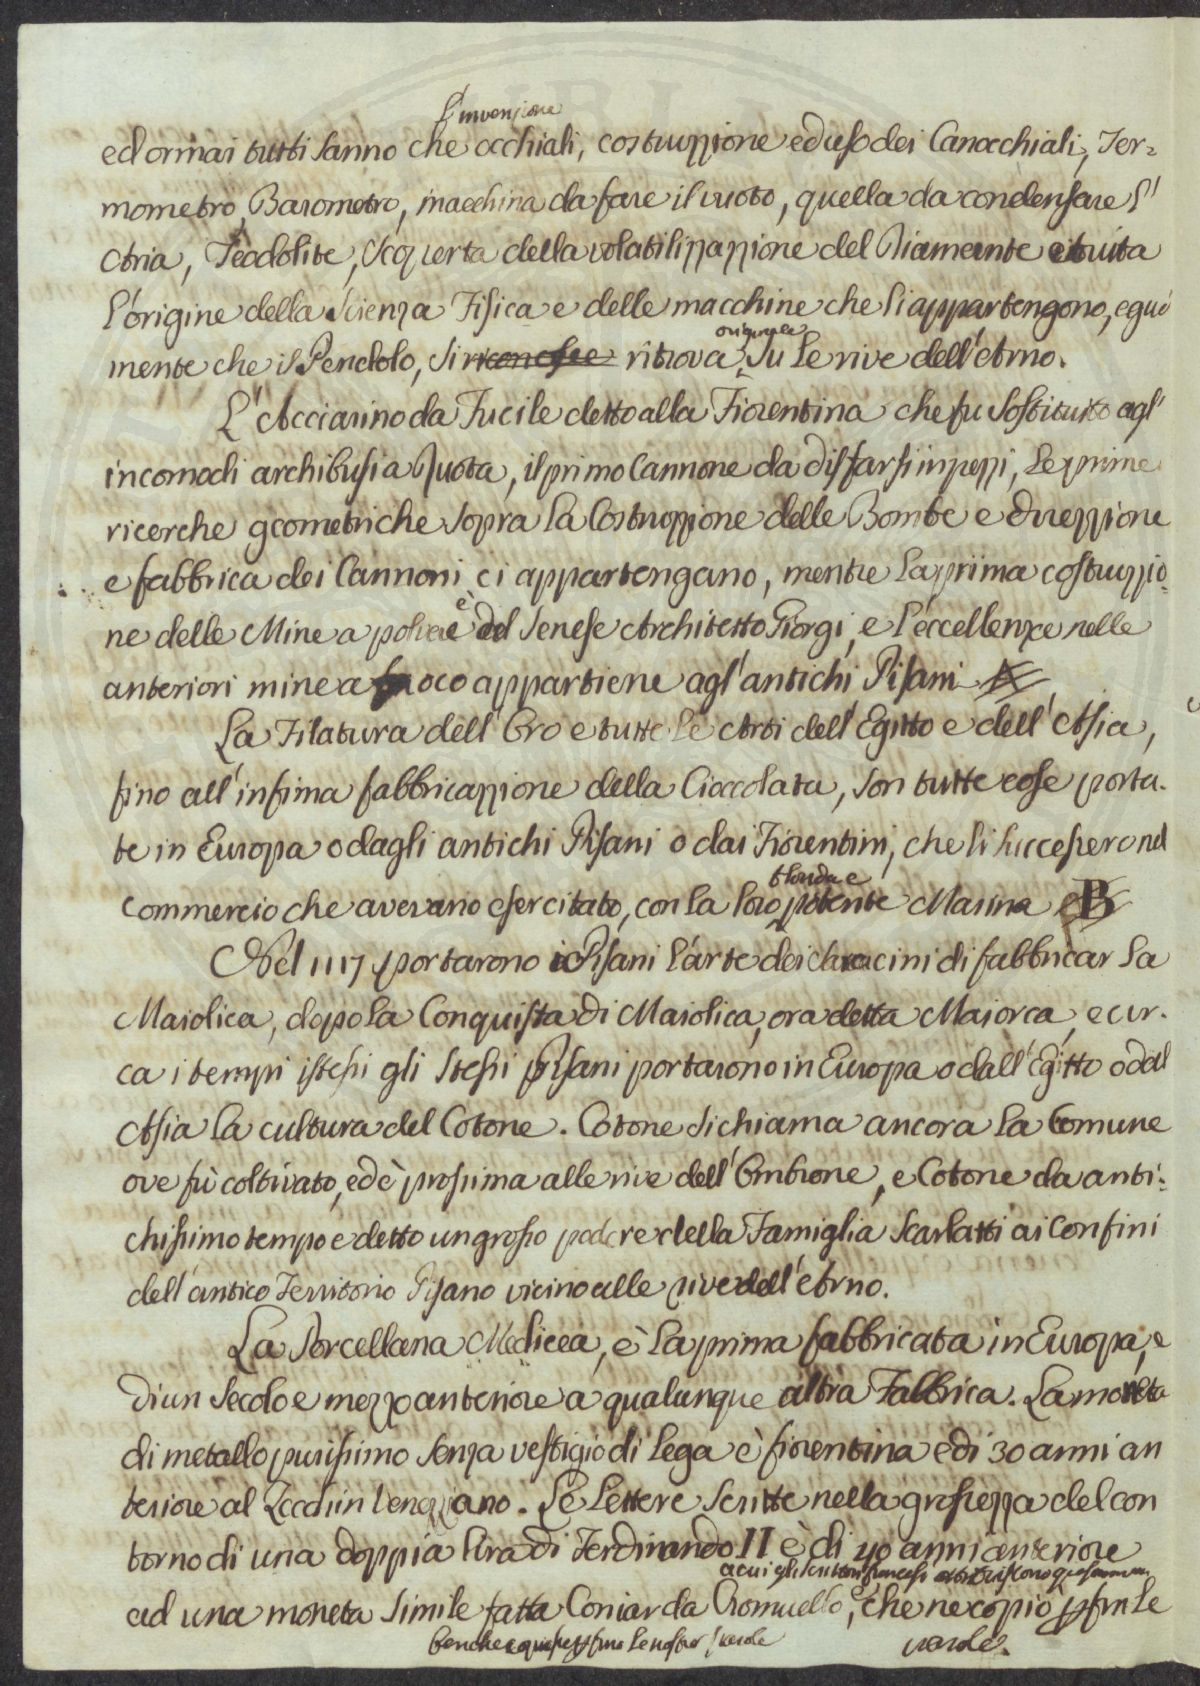 l'invenzione
ed ormai tutti sanno che occhiali, costruzzione ed uso dei Canocchiali, Ter=
mometro, Barometro, macchina da fare il vuoto, quella da condensare l'
Aria, Teodolite, scoperta della volatilizzazzione del Diamante e tutta
l'origine della Scienza Fisica e delle macchine che li appartengono, egual
mente che il Pendolo, si riconosce ritrova originale su le rive dell'Arno.
L'Acciarino da Fucile detto alla Fiorentina che fu sostituito agl'
incomodi archibusi a Ruota, il primo Cannone da disfarsi in pezzi, le prime
ricerche geometriche sopra la Costruzzione delle Bombe e direzzione
e fabbrica dei Cannoni ci appartengano, mentre la prima costruzzio=
ne delle Mine a polvere è del Senese Architetto Giorgi, e l'eccellenza nelle
anteriori mine a fuoco appartiene agl'antichi Pisani A
La Filatura dell'Oro e tutte le Arti dell'Egitto e dell'Asia,
fino all'infima fabbricazzione della Cioccolata, son tutte cose porta-
te in Europa o dagli antichi Pisani o dai Fiorentini, che li successero nel
commercio che avevano esercitato, con la loro potente Marina B
Nel 1117 portarono i Pisani l'arte dei Saracini di fabbricar la
Maiolica, dopo la Conquista di Maiolica, ora detta Maiorca, e cir-
ca i tempi istessi gli stessi Pisani portarono in Europa o dall'Egitto o dall
Asia la cultura del Cotone. Cotone si chiama ancora la Comune
ove fù coltivato, ed è prossima alle rive dell'Ombrone, e Cotone da anti=
chissimo tempo e detto un grosso podere della Famiglia Scarlatti ai Confini
dell'antico Territorio Pisano vicino alle rive dell'Arno.
La Porcellana Medicea, è la prima fabbricata in Europa, e
di un Secolo e mezzo anteriore a qualunque altra Fabbrica. La moneta
di metallo purissimo senza vestigio di lega è fiorentina e di 30 anni an
teriore al Zecchin Veneziano. Le Lettere scritte nella grossezza del con
torno di una doppia lira di Ferdinando II è di 40 anni anteriore
a cui gli scrittori francesi attribuiscono
ad una moneta simile fatta Coniar da Cromuello, che ne copiò perfin le
benche copiasse perfino le nostre parole parole.